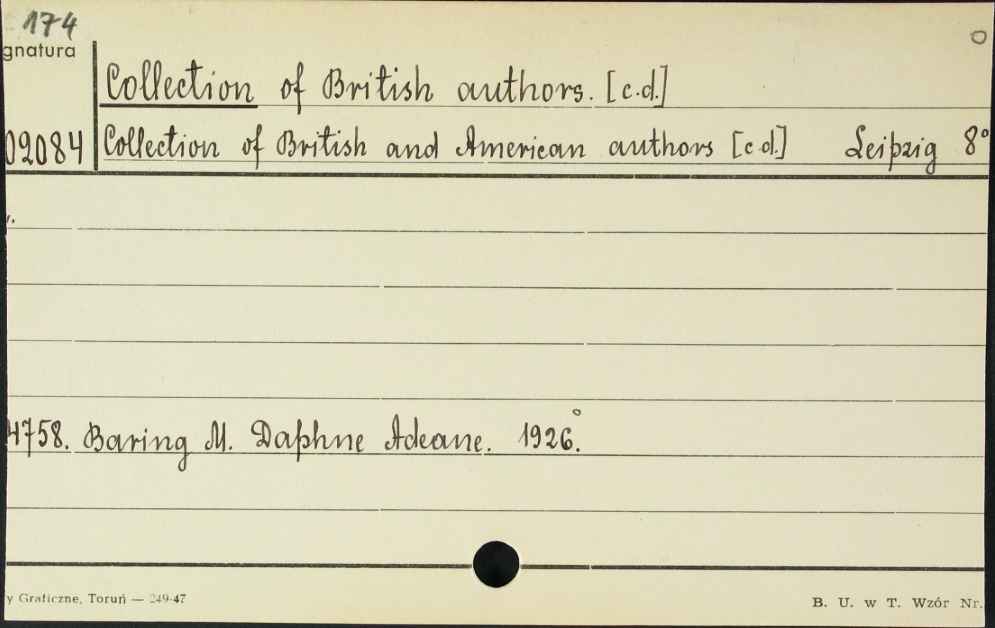 174
gnatura
Collection of British authors. [c.d.]
02084 Collection of British and American authors [c.d.] Leipzig 8°
4758. Baring M. Daphne Adeane. 1926.°
y Graficzne, Toruń — 249-47
B. U. w T. Wzór Nr.